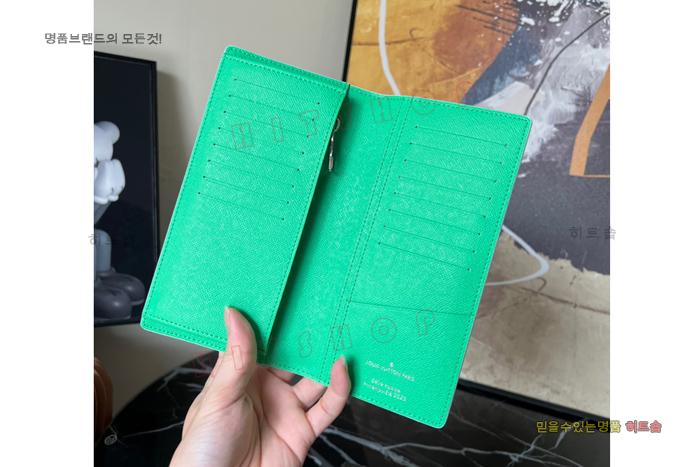 명품브랜드의 모든것!
HIT HO
히트숍
히트숍
SHOP
LOUIS VUITTON PARIS
믿을수있는명품 히트숍